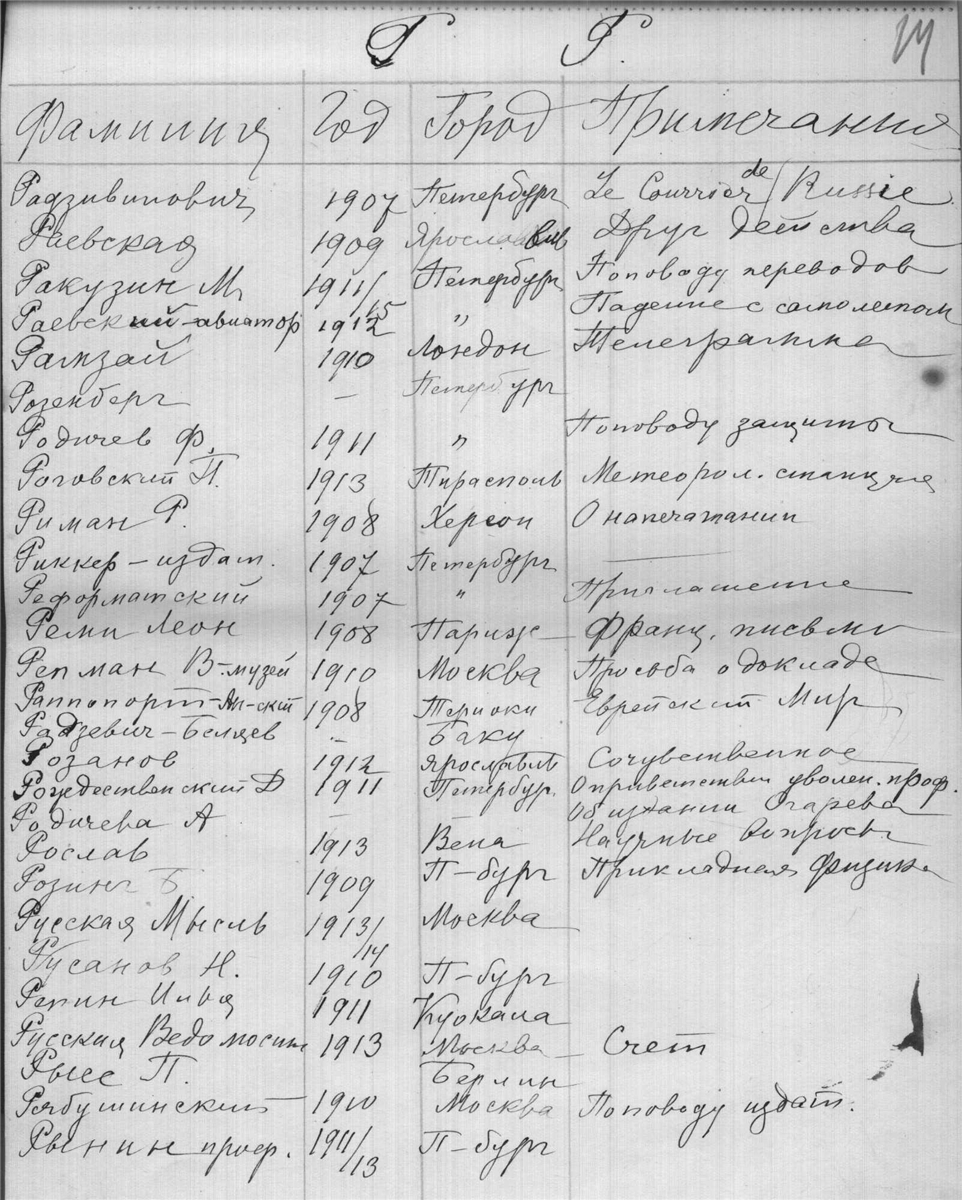 Р Р. 14
Фамилия Год Город Примечания
Радзивинович 1907 Петербург Le Courrier de Russie
Раевская 1909 Ярославль Друг детства
Ракузин М. 1911/15 Петербург По поводу переводов
Раевский-авиатор 1912 " Падение с самолетом
Рамзай 1910 Лондон Телеграмма
Розенберг – Петербург
Родичев Ф. 1911 " По поводу защиты
Роговский П. 1913 Тирасполь Метеорол. станция
Риман Р. 1908 Херсон О напечатании
Риккер – издат. 1907 Петербург —
Реформатский 1907 " Приглашение
Реми Леон 1908 Париж – Франц. письмо
Репман В-музей 1910 Москва Просьба о докладе
Раппопорт-Ан-ский 1908 Териоки Еврейский Мир
Радзевич-Беляев – Баку
Розанов 1912 Ярославль Сочувственное
Рождественский Д 1911 Петербур. О приветствии уволен. проф.
Родичева А – Об издании Огарева
Рослав 1913 Вена Научные вопросы
Розинг Б 1909 П-бург Прикладная физика
Русская Мысль 1913/14 Москва
Русанов Н. 1910 П-бург
Репин Илья 1911 Куокала
Русския Ведомости 1913 Москва – Счет
Рысс П. Берлин
Рябушинский 1910 Москва По поводу издат.
Рынин проф. 1911/13 П-бург